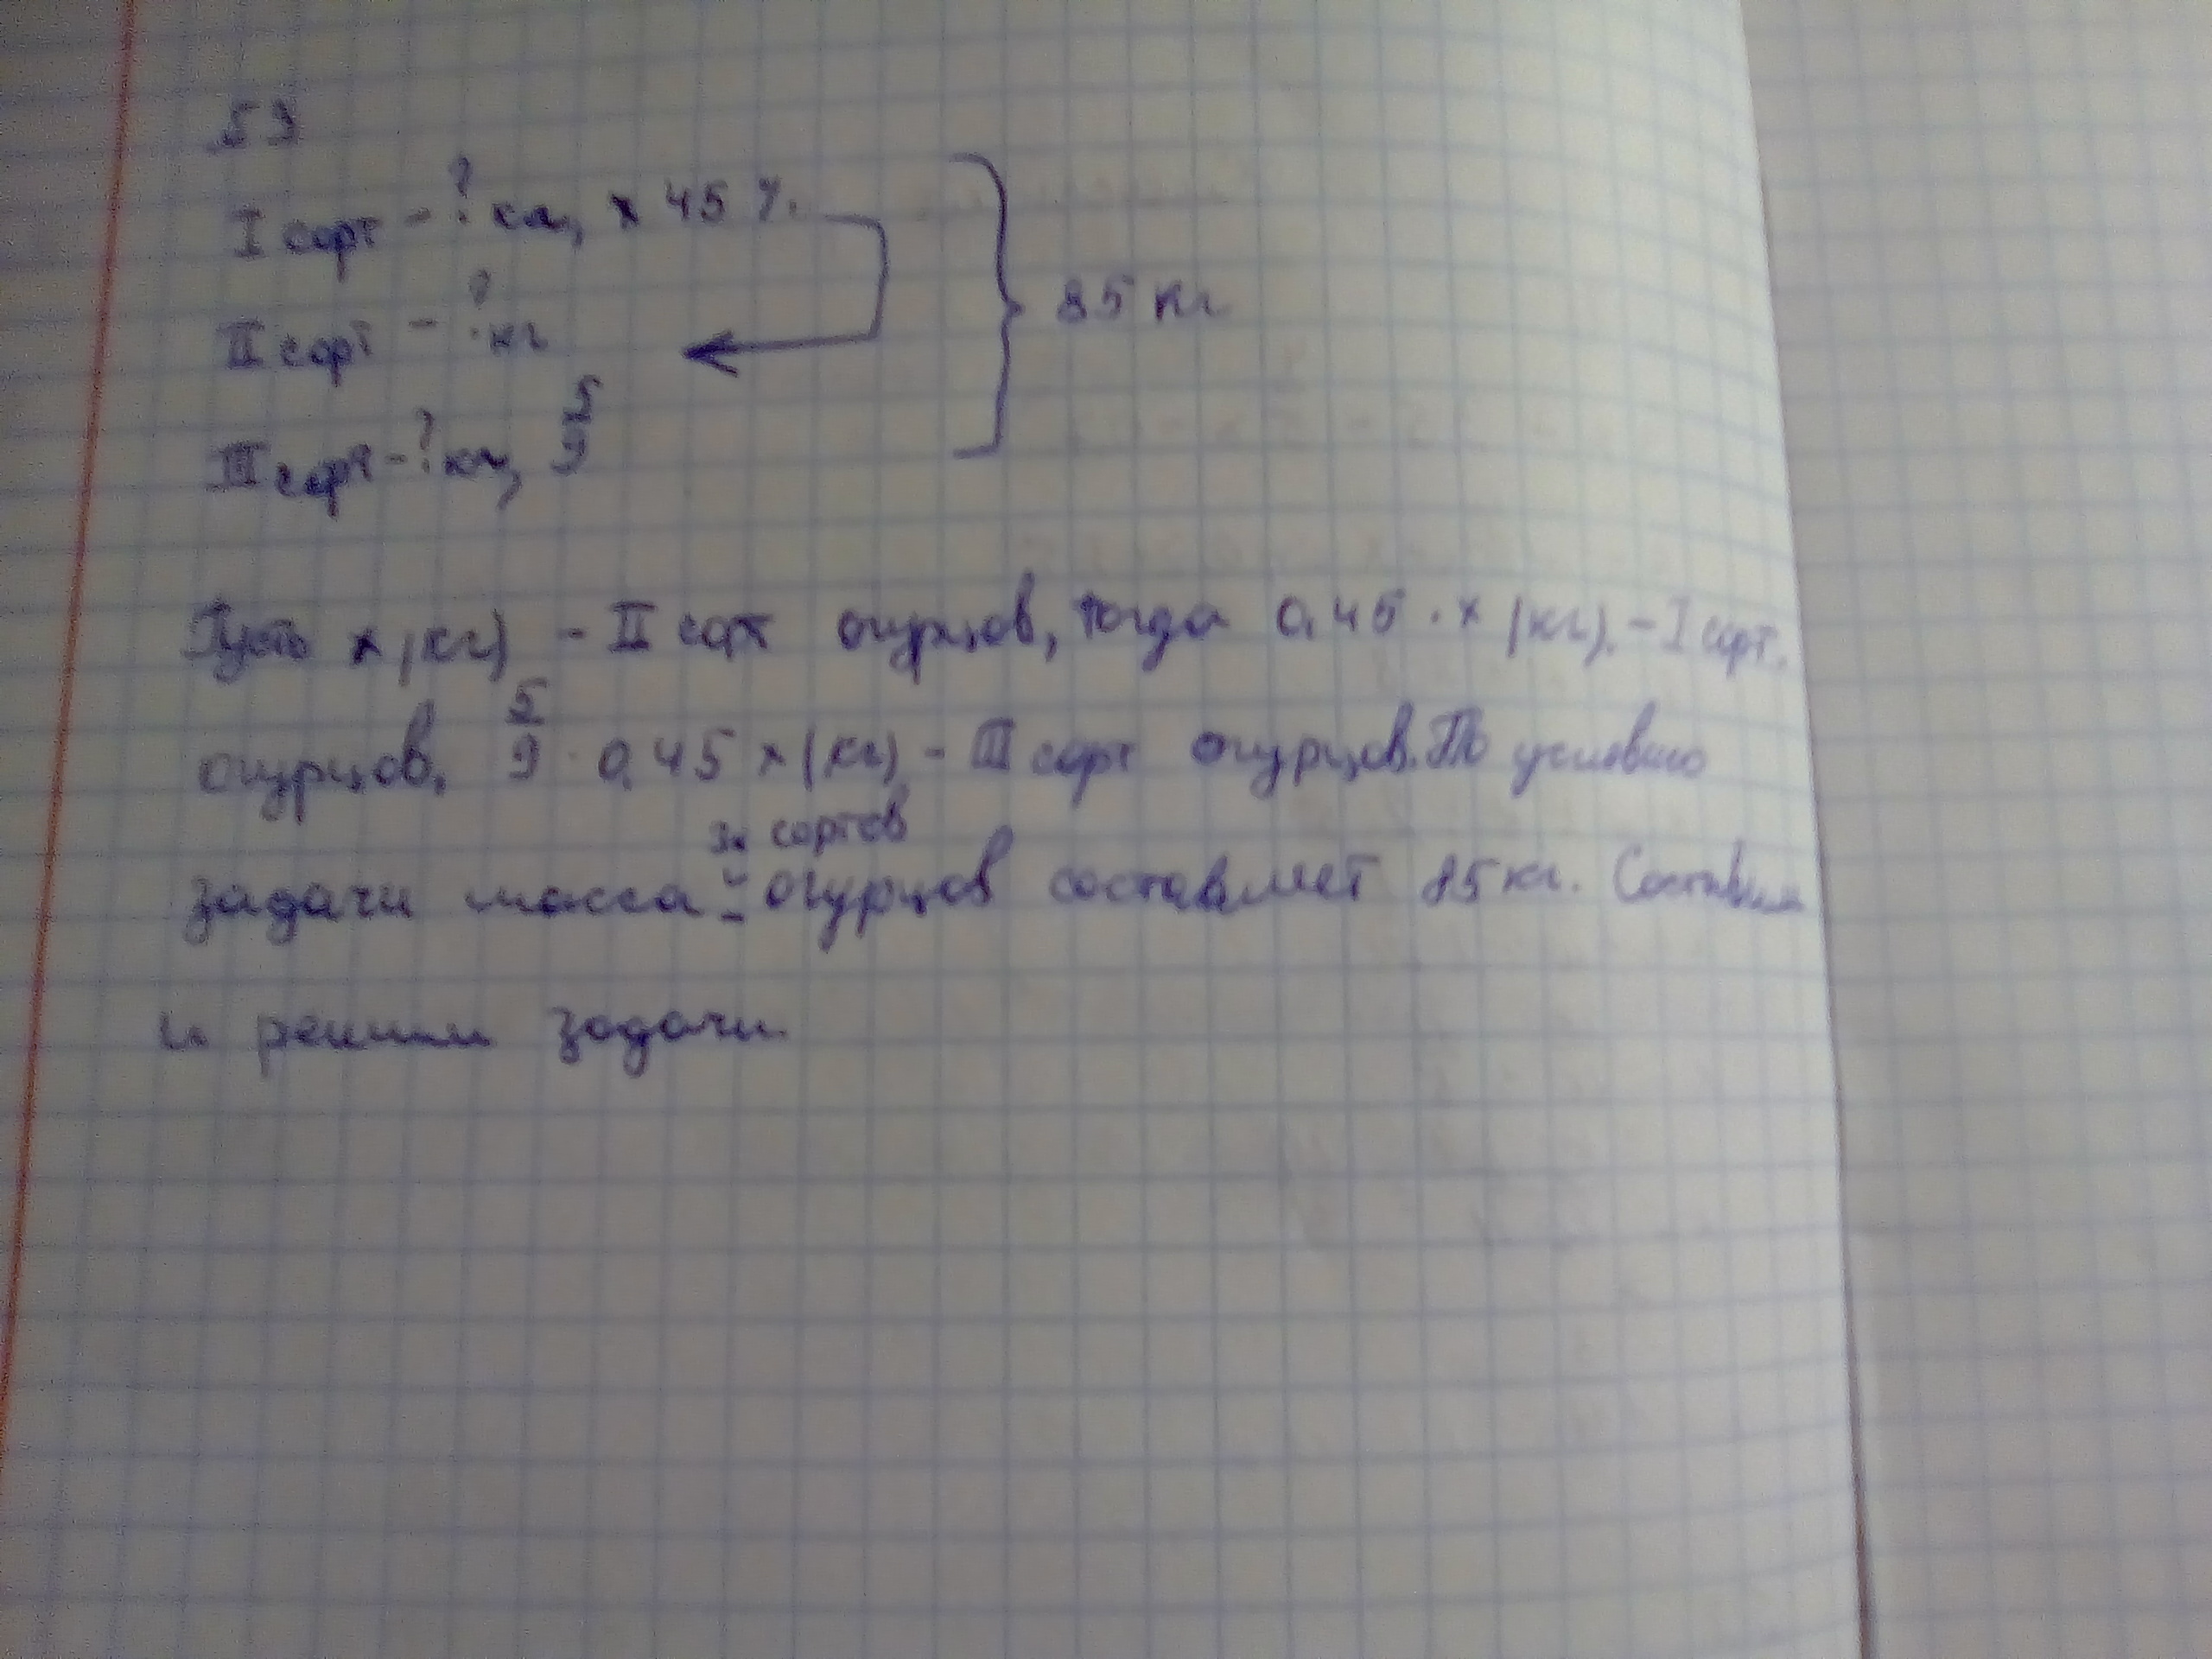 59
I сорт - ? кг, x 45 %.
II сорт - ? кг
III сорт - ? кг, 5/9
85 кг
Пусть x (кг) - II сорт огурцов, тогда 0,45 · x (кг) - I сорт.
огурцов, 5/9 · 0,45 x (кг) - III сорт огурцов. По условию
3х сортов
задачи масса огурцов составляет 85 кг. Составим
и решим задачи.